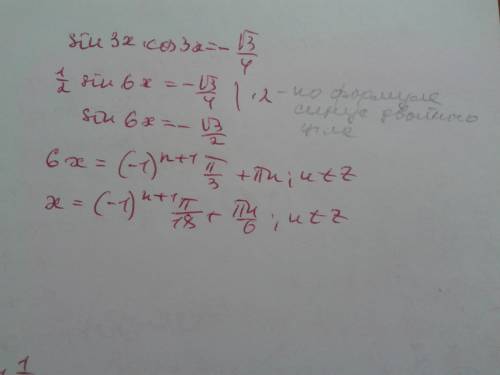 sin 3x · cos 3x = - √3/4
1/2 sin 6x = - √3/4 | · 2 - по формуле
синуса двойного
угла
sin 6x = - √3/2
6x = (-1)^{n+1} π/3 + πn; n ∈ Z
x = (-1)^{n+1} π/18 + πn/6; n ∈ Z
1